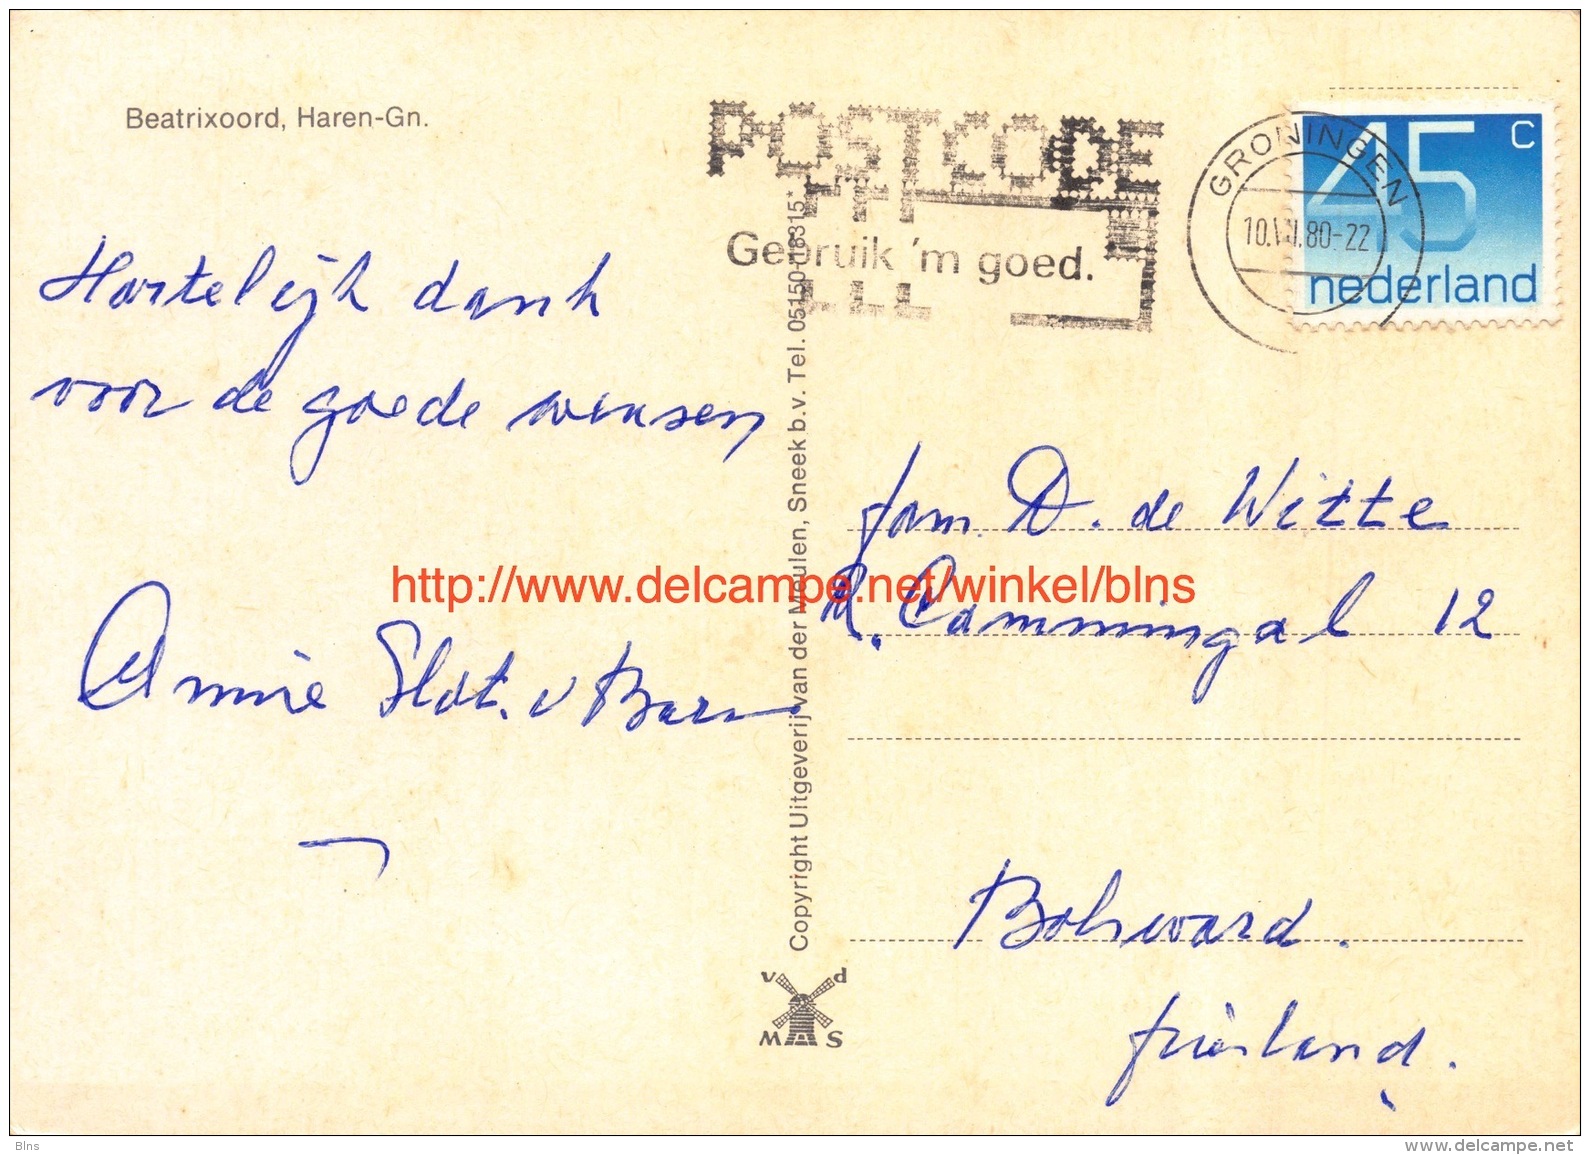 Beatrixoord, Haren-Gn.
POSTCODE
Gebruik 'm goed.
GRONINGEN
80-22
45 c
nederland
Hartelijk dank
voor de goede wensen
Annie Slot. v
Copyright Uitgeverij van der Meulen, Sneek b.v. Tel. 05150-18315*
fam. D. de Witte
R. Cammingal 12
Bolsward.
friesland.
v d
M A S
http://www.delcampe.net/winkel/blns
Blns
www.delcampe.net